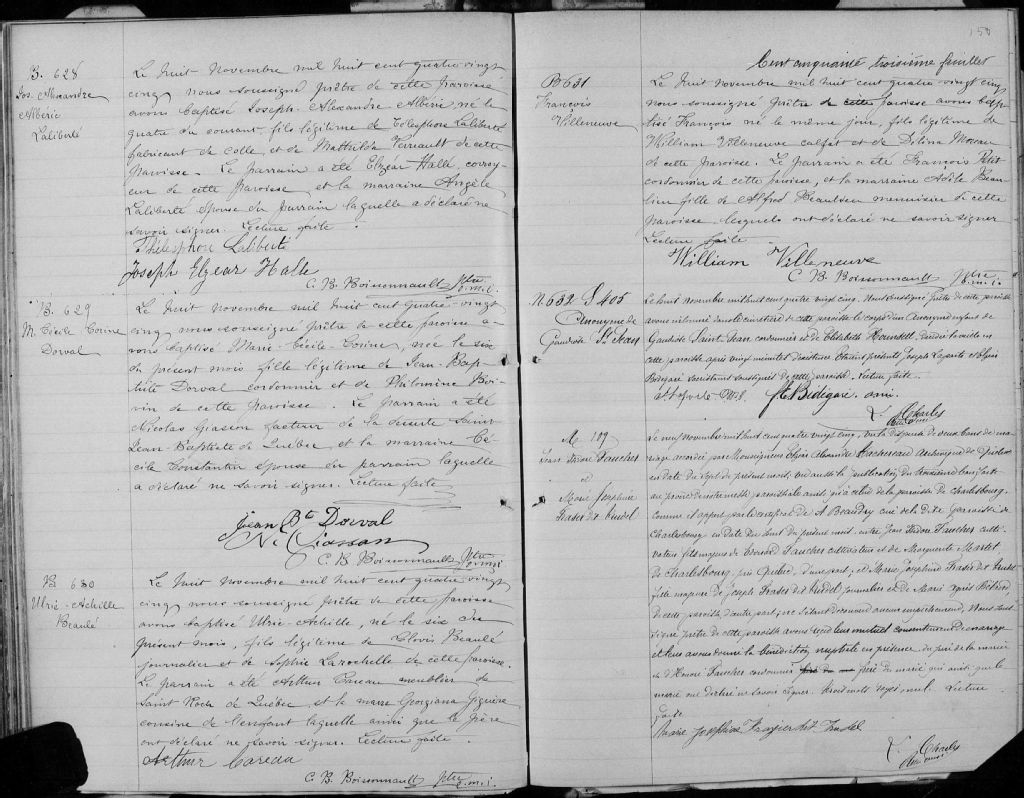 B. 628
Jos. Alexandre
Albéric
Laliberté
Le huit Novembre mil huit cent quatre vingt
cinq nous soussigné prêtre de cette paroisse
avons baptisé Joseph-Alexandre Albéric né le
quatre du courant, fils légitime de Télesphore Laliberté
fabricant de colle, et de Mathilda Terreault de cette
paroisse. Le parrain a été Elzéar Hallé corroy-
eur de cette paroisse et la marraine Angèle
Laliberté épouse du parrain laquelle a déclaré ne
savoir signer. Lecture faite.
Thélesphore Laliberté
Joseph Elzear Halle
C. B. Boissonnault Ptre
o.m.i.
B. 629
M. Cécile Corine
Dorval
Le huit Novembre mil huit cent quatre-vingt
cinq, nous soussigné prêtre de cette paroisse a-
vons baptisé Marie-Cécile-Corine, née le six
du présent mois fille légitime de Jean-Bap-
tiste Dorval cordonnier et de Philomène Boi-
vin de cette paroisse. Le parrain a été
Nicolas Giasson facteur de la desserte Saint
Jean-Baptiste de Québec et la marraine Cé-
cile Constantin épouse du parrain laquelle
a déclaré ne savoir signer. Lecture faite
Jean Bte Dorval
N. Giasson
C. B. Boissonnault Ptre
o.m.i
B 630
Ulric-Achille
Beaulé
Le huit Novembre mil huit cent quatre vingt
cinq nous soussigné prêtre de cette paroisse
avons baptisé Ulric-Achille, né le six du
présent mois, fils légitime de Clovis Beaulé
journalier et de Sophie Larochelle de cette paroisse.
Le parrain a été Arthur Careau meublier de
Saint Roch de Québec et la marre Georgiana Giguère
cousine de l'enfant laquelle ainsi que le père
ont déclaré ne savoir signer. Lecture faite.
Arthur Careau
C. B. Boissonnault Ptre
o.m.i.
150
Cent cinquante troisième feuillet
B 631
François
Villeneuve
Le huit Novembre mil huit cent quatre vingt cinq
nous soussigné prêtre de cette paroisse avons bap-
tisé François né le même jour, fils légitime de
William Villeneuve calfat et de Délina Moreau
de cette paroisse. Le parrain a été François Petit
cordonnier de cette paroisse, et la marraine Adèle Beau
lieu fille de Alfred Beaulieu menuisier de cette
paroisse, lesquels ont déclaré ne savoir signer
Lecture faite
William Villeneuve
C. B. Boissonnault Ptre
o.m.i.
N. 632 S 405
Anonyme de
Gaudiose St Jean
Le huit novembre mil huit cent quatre vingt cinq, Nous soussigné prêtre de cette paroisse
avons inhumé dans le cimetière de cette paroisse le corps d'un Anonyme enfant de
Gaudiose Saint Jean cordonnier et de Elisabeth, ondoyé décédé en
cette paroisse après vingt minutes d'existence. Etaient présents Joseph Laporte et Elzéar
Bédigaré sacristains soussignés de cette paroisse. Lecture faite.
J. Laporte. O.M.I. fte Bédigaré o.m.i.
L. Charles
M 109
Jean Isidore Faucher
et
Marie Josephine
Fraser dit Trudel
Le neuf Novembre mil huit cent quatre vingt cinq, vu la dispense de deux bans de ma-
riage accordée par Monseigneur Elzéar Alexandre Taschereau Archevêque de Québec
en date du sept du présent mois, vu aussi la publication du troisième ban faite
au prône de notre messe paroissiale ainsi qu'à celui de la paroisse de Charlesbourg
comme il appert par le certificat de A Beaudry curé de la dite paroisse de
Charlesbourg en date du huit du présent mois, entre Jean Isidore Faucher culti-
vateur fils majeur de Edouard Faucher cultivateur et de Marguerite Martel
de Charlesbourg, près Québec, d'une part; et Marie Joséphine Fraser dit Trudel
fille majeure de Joseph Fraser dit Trudel journalier et de Marie Agnès Bédard,
de cette paroisse, d'autre part; ne s'étant découvert aucun empêchement, Nous sous-
signé prêtre de cette paroisse avons reçu leur mutuel consentement de mariage
et leur avons donné la bénédiction nuptiale en présence du père de la mariée
et d'Honoré Faucher cordonnier frère du marié qui ainsi que le
marié ont déclaré ne savoir signer. trois mots rayés nuls. Lecture
faite
Marie Josephine Frasier dit Trudel
L. Charles